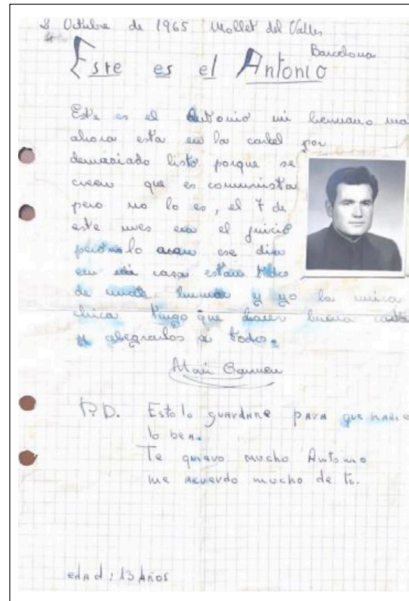 3 Octubre de 1965 Mollet del Valles
Barcelona
Este es el Antonio
Este es el Antonio mi hermano ma
ahora esta en la carcel por
demaciado listo porque se
creen que es comunista
pero no lo es, el 7 de
este mes era el juicio
pero no lo asen ese dia
en mi casa estan
de y yo la unica
chica tengo que hacer buena cara
y alegrarlos a todos.
Mari Carmen
P.D. Esto lo guardare para que nadie
lo bea.
Te quiero mucho Antonio
me acuerdo mucho de ti.
edad: 13 años